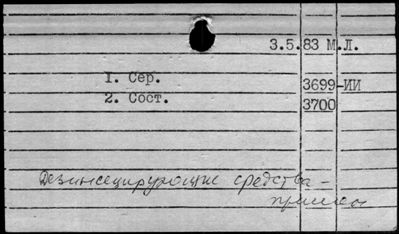 3.5.83 М.Л.
1. Сер. 3699-ИИ
2. Сост. 3700
Дезинсецирующие средства -
примен